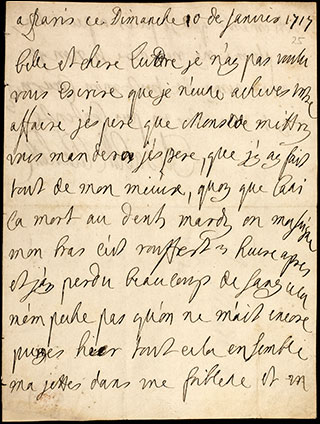 a Paris ce Dimanche 10 de Janvier 1717
25
belle et chere Ludre je n'ay pas voulu
vous Escrire que je n'eusse acheves votre
affaire j'espere que Mons de mittry
vous mandera j'espere, que j'y ay fait
tout de mon mieux, quoy que
la mort au dents mardy on m'a seigné
mon bras s'est rouffert 3 heures apres
et j'ay perdu beaucoup de sang cela
n'empeche pas qu'on ne m'ait encore
purgés hier tout cela ensemble
ma jettes dans une foiblesse et un